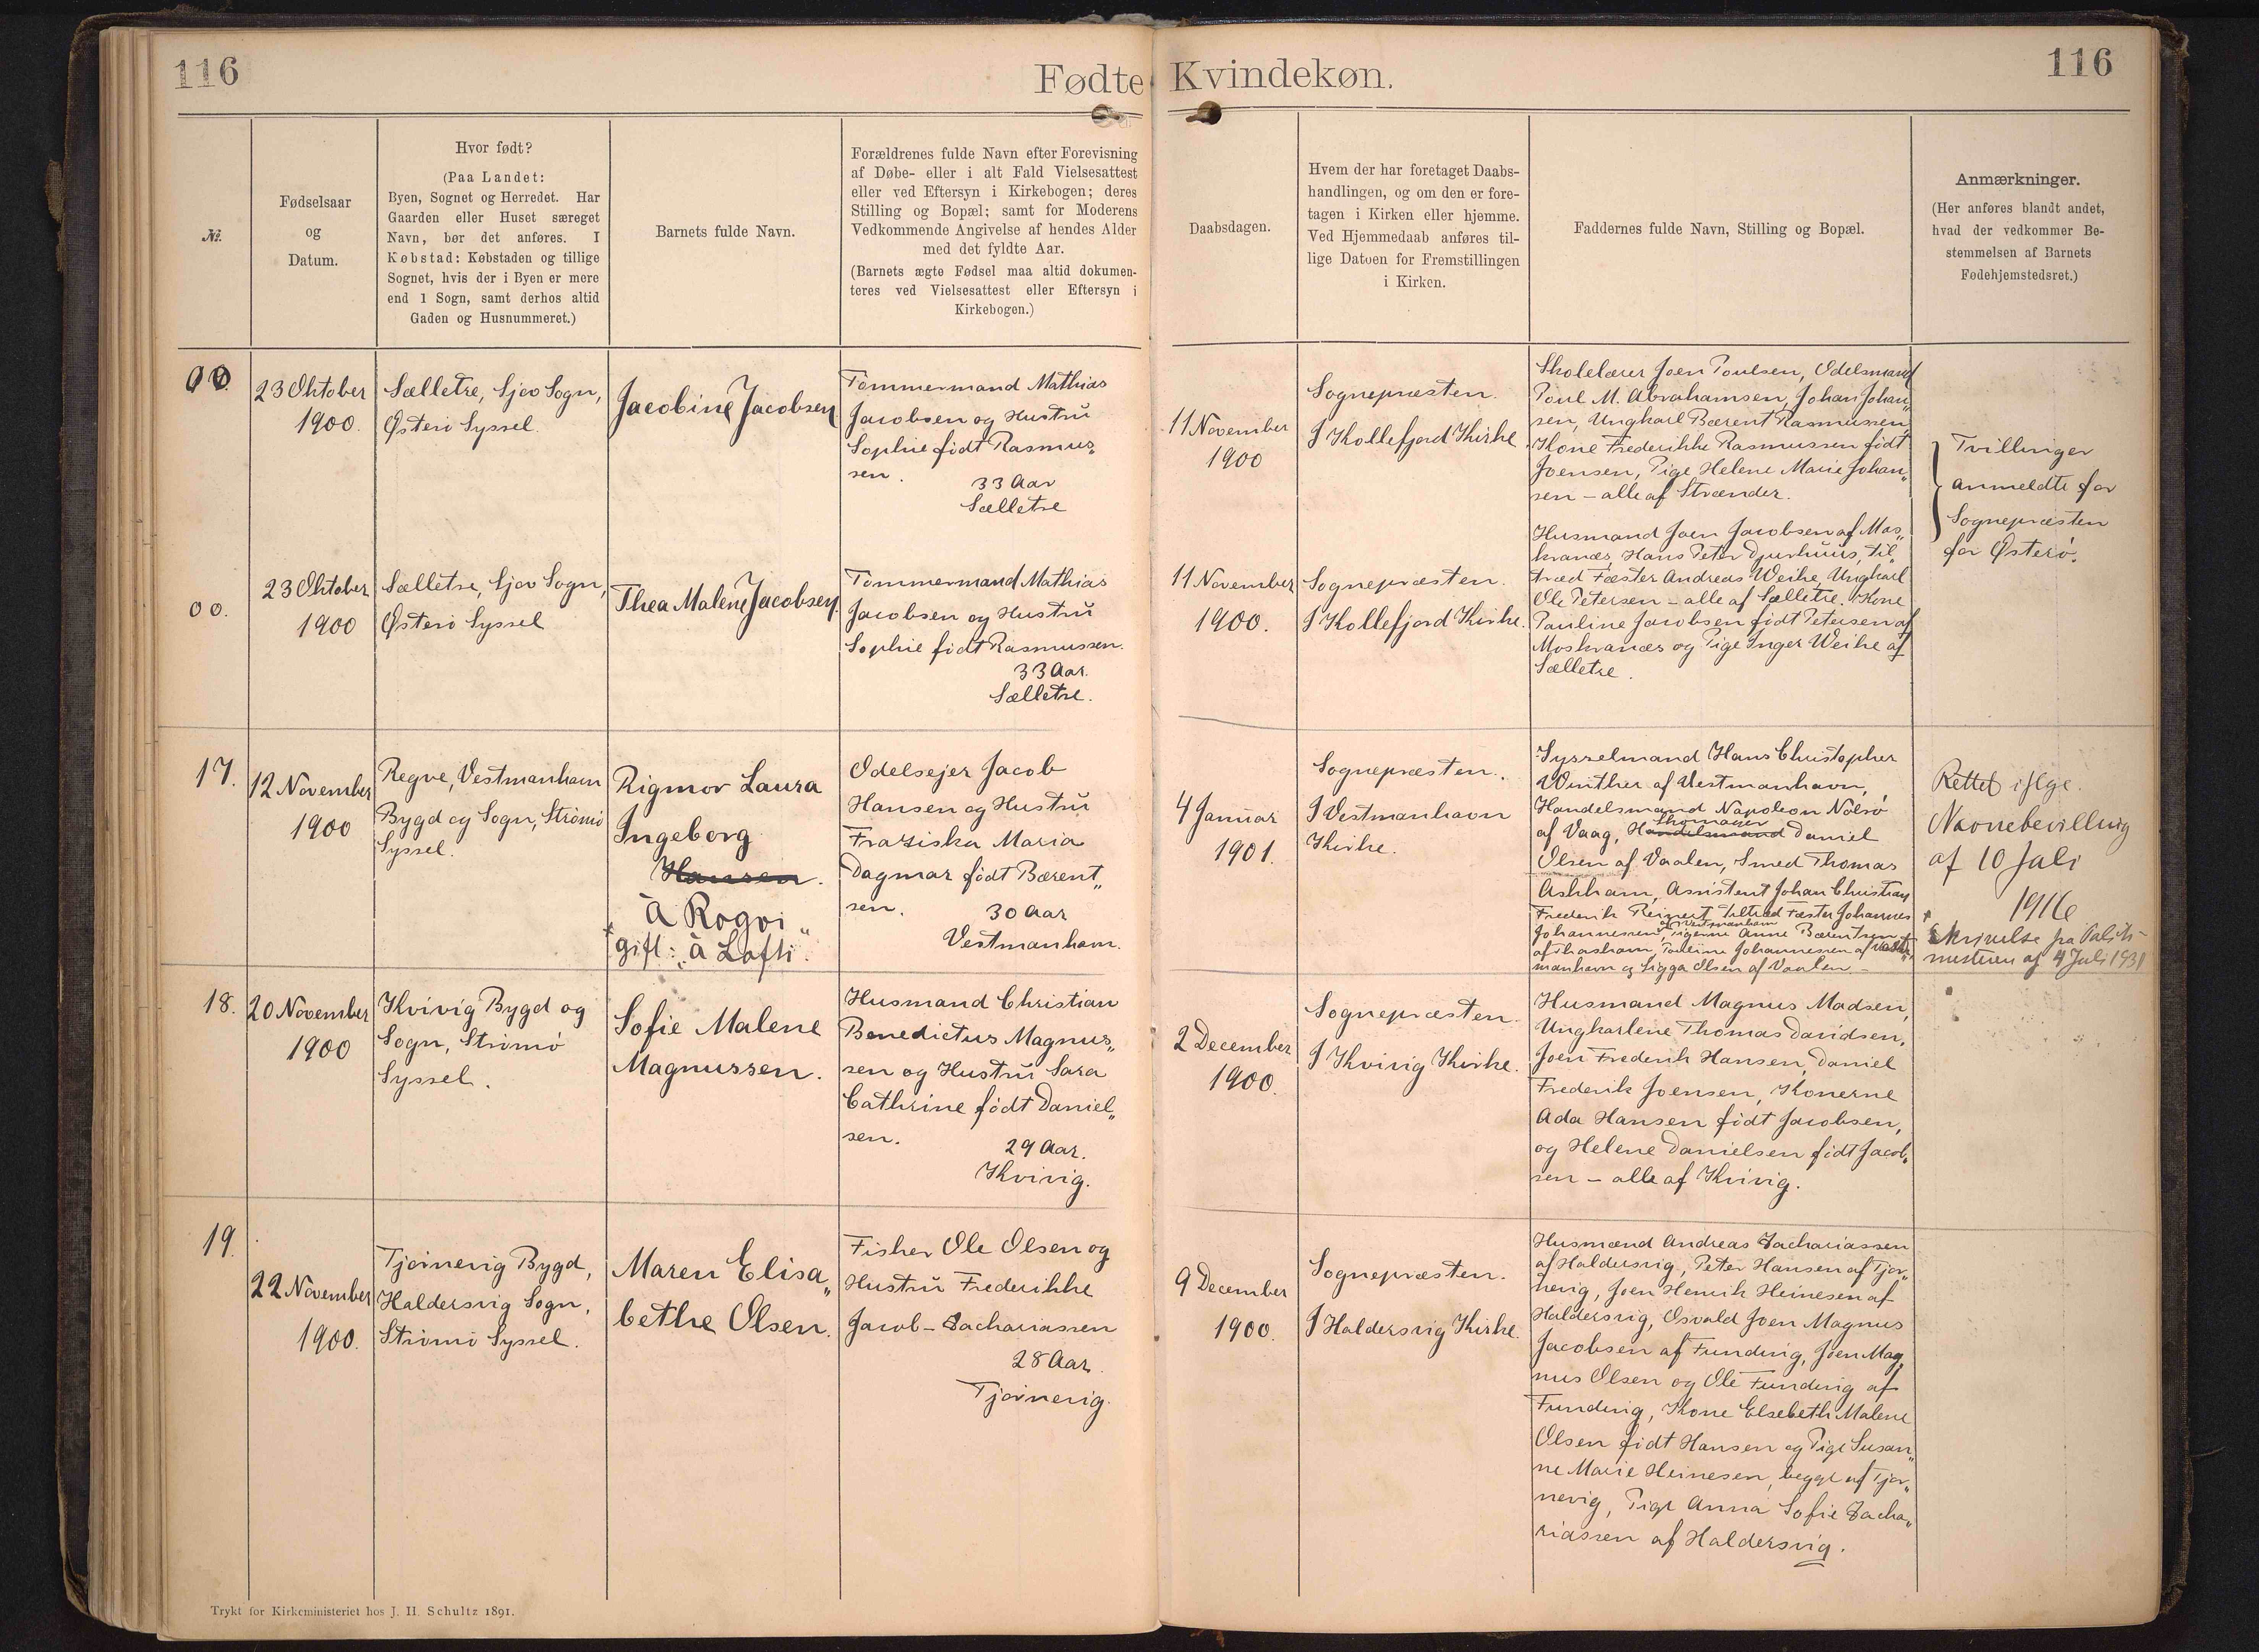 116
Fødte Kvindekøn.
116
№.
Fødselsaar
og
Datum.
Hvor født?
(Paa Landet:
Byen, Sognet og Herredet. Har
Gaarden eller Huset særeget
Navn, bør det anføres. I
Købstad: Købstaden og tillige
Sognet, hvis der i Byen er mere
end 1 Sogn, samt derhos altid
Gaden og Husnummeret.)
Barnets fulde Navn.
Forældrenes fulde Navn efter Forevisning
af Døbe- eller i alt Fald Vielsesattest
eller ved Eftersyn i Kirkebogen; deres
Stilling og Bopæl; samt for Moderens
Vedkommende Angivelse af hendes Alder
med det fyldte Aar.
(Barnets ægte Fødsel maa altid dokumen-
teres ved Vielsesattest eller Eftersyn i
Kirkebogen.)
Daabsdagen.
Hvem der har foretaget Daabs-
handlingen, og om den er fore-
tagen i Kirken eller hjemme.
Ved Hjemmedaab anføres til-
lige Datoen for Fremstillingen
i Kirken.
Faddernes fulde Navn, Stilling og Bopæl.
Anmærkninger.
(Her anføres blandt andet,
hvad der vedkommer Be-
stemmelsen af Barnets
Fødehjemstedsret.)
00.
23 Oktober
1900.
Sælletre, Sjov Sogn,
Østerö Syssel.
Jacobine Jacobsen
Tømmermand Mathias
Jacobsen og Hustrü
Sophie født Rasmus„
sen.
33 Aar
Sælletre
11 November
1900
Sognepræsten.
I Kollefjord Kirke
Skolelærer Joen Poulsen, Odelsmand
Poul M. Abrahamsen, Johan Johan„
sen, Ungkarl Bærent Rasmussen,
Kone Frederikke Rasmussen født
Joensen, Pige Helene Marie Johan„
sen – alle af Strænder.
Tvillinger
anmeldte for
Sognepræsten
for Østerö.
00.
23 Oktober
1900
Sælletre, Sjov Sogn,
Østerö Syssel
Thea Malene Jacobsen
Tømmermand Mathias
Jacobsen og Hustrü
Sophie født Rasmussen.
33 Aar.
Sælletre.
11 November
1900.
Sognepræsten.
I Kollefjord Kirke.
Husmand Joen Jacobsen af Mos„
kranæs, Hans Peter Djurhuus, til„
træd Fæster Andreas Weihe, Ungkarl
Ole Petersen – alle af Sælletre. Kone
Pauline Jacobsen født Petersen af
Moskranæs og Pige Inger Weihe af
Sælletre.
17.
12 November
1900
Regve, Vestmanhavn
Bygd og Sogn, Strömö
Syssel.
Rigmor Laura
Ingeborg
Hansen.
"á Rógvi"
gift: "á Lofti".
Odelsejer Jacob
Hansen og Hustrü
Fraziska Maria
Dagmar født Bærent„
sen.
30 Aar
Vestmanhavn.
4 Januar
1901.
Sognepræsten.
I Vestmanhavn
Kirke.
Sysselmand Hans Christopher
Winther af Vestmanhavn,
Handelsmand Napoleon Nolsö
af Vaag, Handelsmand Daniel
Olsen af Vaalen, Smed Thomas
Askham, Assistent Johan Christian
Frederik Reinert, tiltræd Fæster Johannes
af Vestmanhavn
Johannessen, Pigerne Anne Bærentsen
af Thorshavn, Pauline Johannessen af Vest„
manhavn og Sigga Olsen af Vaalen –
Rettet iflge.
Navnebevilling
af 10 Juli
1916
Skrivelse fra Politi-
mesteren af 4 Juli 1931
18.
20 November
1900
Kvivig Bygd og
Sogn, Strömö
Syssel.
Sofie Malene
Magnussen.
Husmand Christian
Benedictus Magnus„
sen og Hustrü Sara
Cathrine født Daniel„
sen.
29 Aar.
Kvivig.
2 December
1900.
Sognepræsten.
I Kvivig Kirke.
Husmand Magnus Madsen,
Ungkarlene Thomas Davidsen,
Joen Frederik Hansen, Daniel
Frederik Joensen, Konerne
Ada Hansen født Jacobsen,
og Helene Danielsen født Jacob„
sen – alle af Kvivig.
19.
22 November
1900.
Tjörnevig Bygd,
Haldersvig Sogn,
Strömö Syssel.
Maren Elisa„
bethe Olsen.
Fisker Ole Olsen og
Hustrü Frederikke
Jacob-Zachariassen
28 Aar.
Tjörnevig.
9 December
1900.
Sognepræsten.
I Haldersvig Kirke.
Husmænd Andreas Zachariassen
af Haldersvig, Peter Hansen af Tjör„
nevig, Joen Henrik Heinesen af
Haldersvig, Osvald Joen Magnus
Jacobsen af Funding, Joen Mag„
nus Olsen og Ole Funding af
Funding, Kone Elsebeth Malene
Olsen født Hansen og Pige Susan„
ne Marie Heinesen, begge af Tjör„
nevig, Pige Anna Sofie Zacha„
riassen af Haldersvig.
Trykt for Kirkeministeriet hos J. H. Schultz 1891.